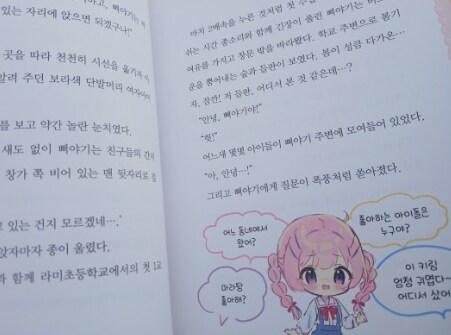 있는 자리에 앉으면 되겠구나!"
곳을 따라 천천히 시선을 옮기자
알려 주던 보라색 단발머리 여자아이
를 보고 약간 놀란 눈치였다.
새도 없이 뼈야기는 친구들의
창가 쪽 비어 있는 맨 뒷자리로
고 있는 건지 모르겠네…'
앉자마자 종이 울렸다.
과 함께 라미초등학교에서의 첫
마치 2배속을 누른 것처럼 첫
쉬는 시간 종소리와 함께 긴장이 풀린 뼈야기는
여유를 가지고 창문 밖을 바라봤다. 학교 주변으로 봄기
운을 뿜어내는 숲과 들판이 보였다. 봄이 성큼 다가온…
자, 잠깐! 저 들판, 어디서 본 것 같은데…?
"안녕, 뼈야기야!"
"헛!"
어느새 몇몇 아이들이 뼈야기 주변에 모여들어 있었다.
"아, 안녕…!"
그리고 뼈야기에게 질문이 폭풍처럼 쏟아졌다.
어느 동네에서
왔어?
좋아하는 아이돌은
누구야?
마라탕
좋아해?
이 키링
엄청 귀엽다~
어디서 샀어